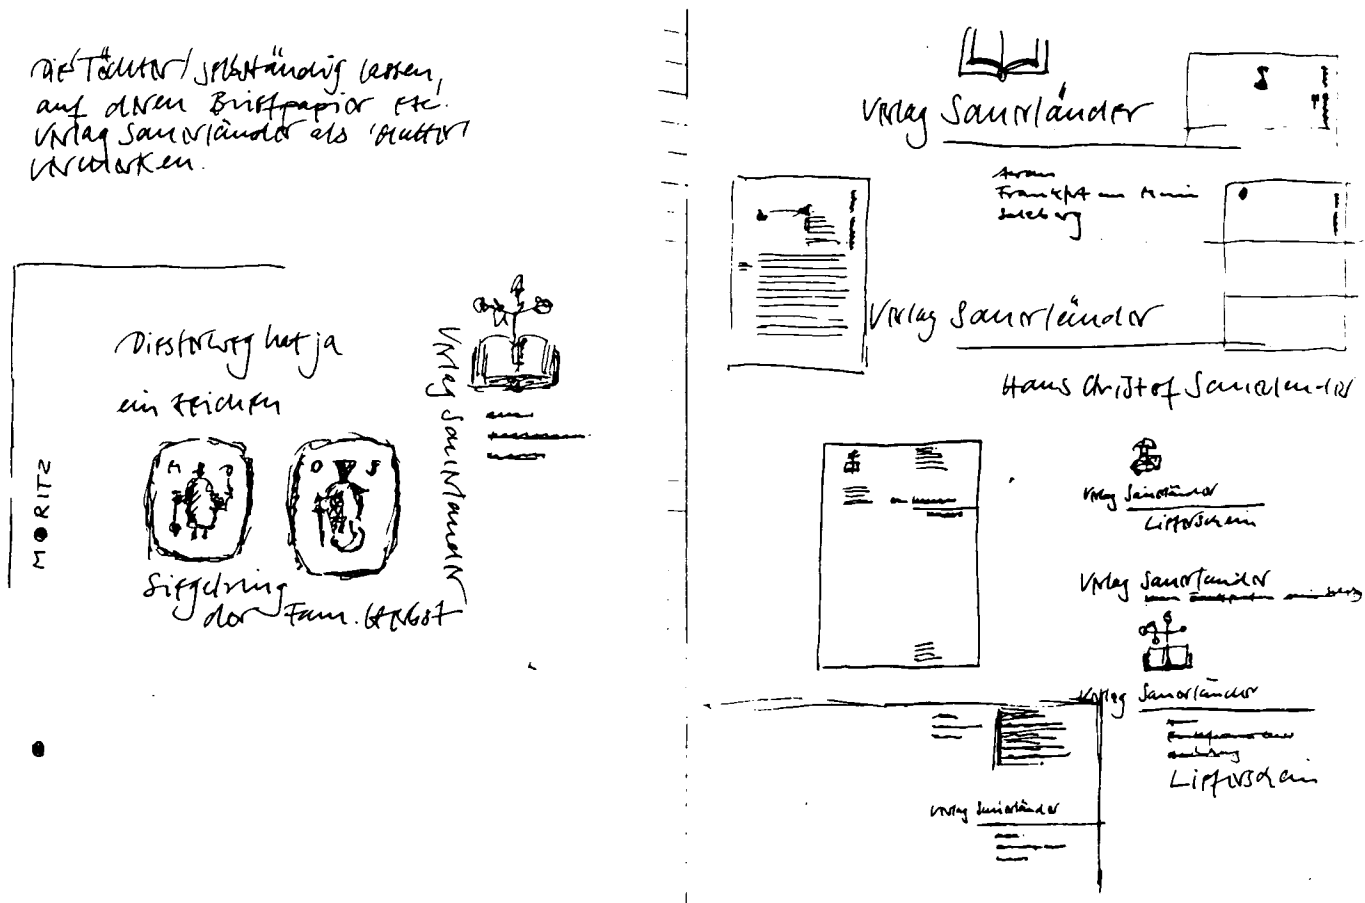 Die Töchter selbständig lassen,
auf deren Briefpapier etc.
Verlag Sauerländer als 'Mutter'
vermerken.
Diesterweg hat ja
ein Zeichen
MORITZ
M D
O S
Siegelring
der Fam. Herbst
Verlag Sauerländer
Verlag Sauerländer
Aarau
Frankfurt am Main
Salzburg
Verlag Sauerländer
Hans Christof Sauerländer
Verlag Sauerländer
Lieferschein
Verlag Sauerländer
Verlag Sauerländer
Lieferschein
Verlag Sauerländer